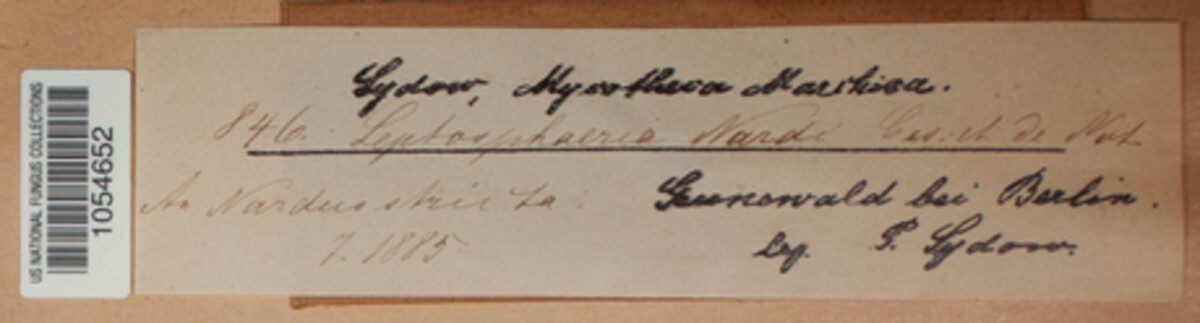 US NATIONAL FUNGUS COLLECTIONS
1054652
Sydow, Mycotheca Marchica.
846. Leptosphaeria Nardi Ces. et de Not
An Nardus stricta.
Grunewald bei Berlin.
7. 1885
leg. P. Sydow.